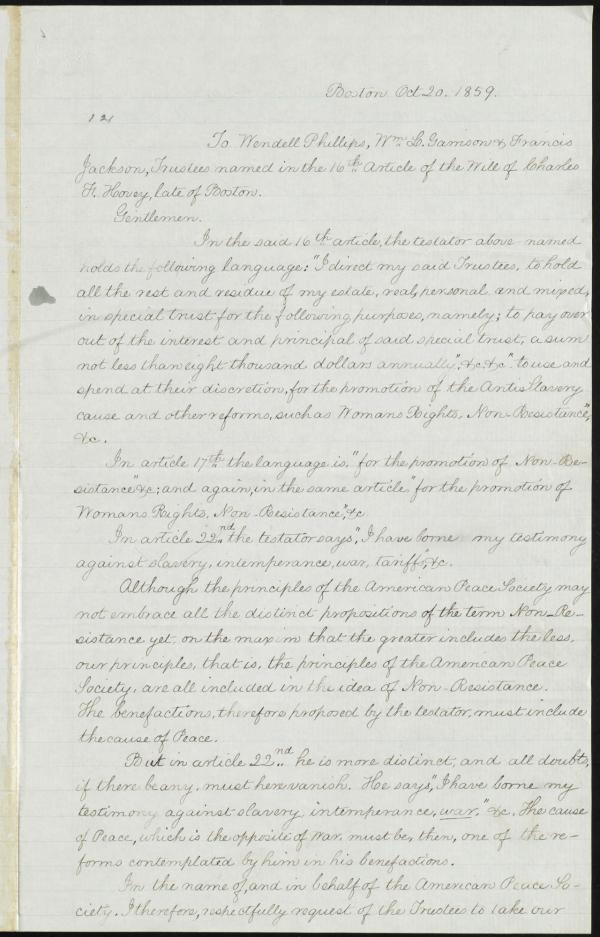 Boston Oct 20. 1859.
121
To Wendell Phillips, Wm L. Garrison & Francis
Jackson, Trustees named in the 16th Article of the Will of Charles
F. Hovey, late of Boston.
Gentlemen.
In the said 16th article, the testator above named
holds the following language: "I direct my said Trustees, to hold
all the rest and residue of my estate, real, personal and mixed,
in special trust for the following purposes, namely; to pay over
out of the interest and principal of said special trust, a sum
not less than eight thousand dollars annually", &c &c " to use and
spend at their discretion, for the promotion of the Anti Slavery
cause and other reforms, such as Womans Rights, Non-Resistance",
&c.
In article 17th the language is, "for the promotion of Non-Re-
sistance" &c; and again, in the same article "for the promotion of
Womans Rights, Non-Resistance", &c
In article 22nd the testator says, "I have borne my testimony
against slavery, intemperance, war, tariff", &c.
Although the principles of the American Peace Society may
not embrace all the distinct propositions of the term Non-Re-
sistance yet, on the maxim that the greater includes the less,
our principles, that is, the principles of the American Peace
Society, are all included in the idea of Non-Resistance.
The benefactions, therefore proposed by the testator, must include
the cause of Peace.
But in article 22nd he is more distinct, and all doubts,
if there be any, must here vanish. He says, "I have borne my
testimony against slavery, intemperance, war," &c. The cause
of Peace, which is the opposite of War, must be, then, one of the re-
forms contemplated by him in his benefactions.
In the name of, and in behalf of the American Peace So-
ciety. I therefore, respectfully request of the Trustees to take our